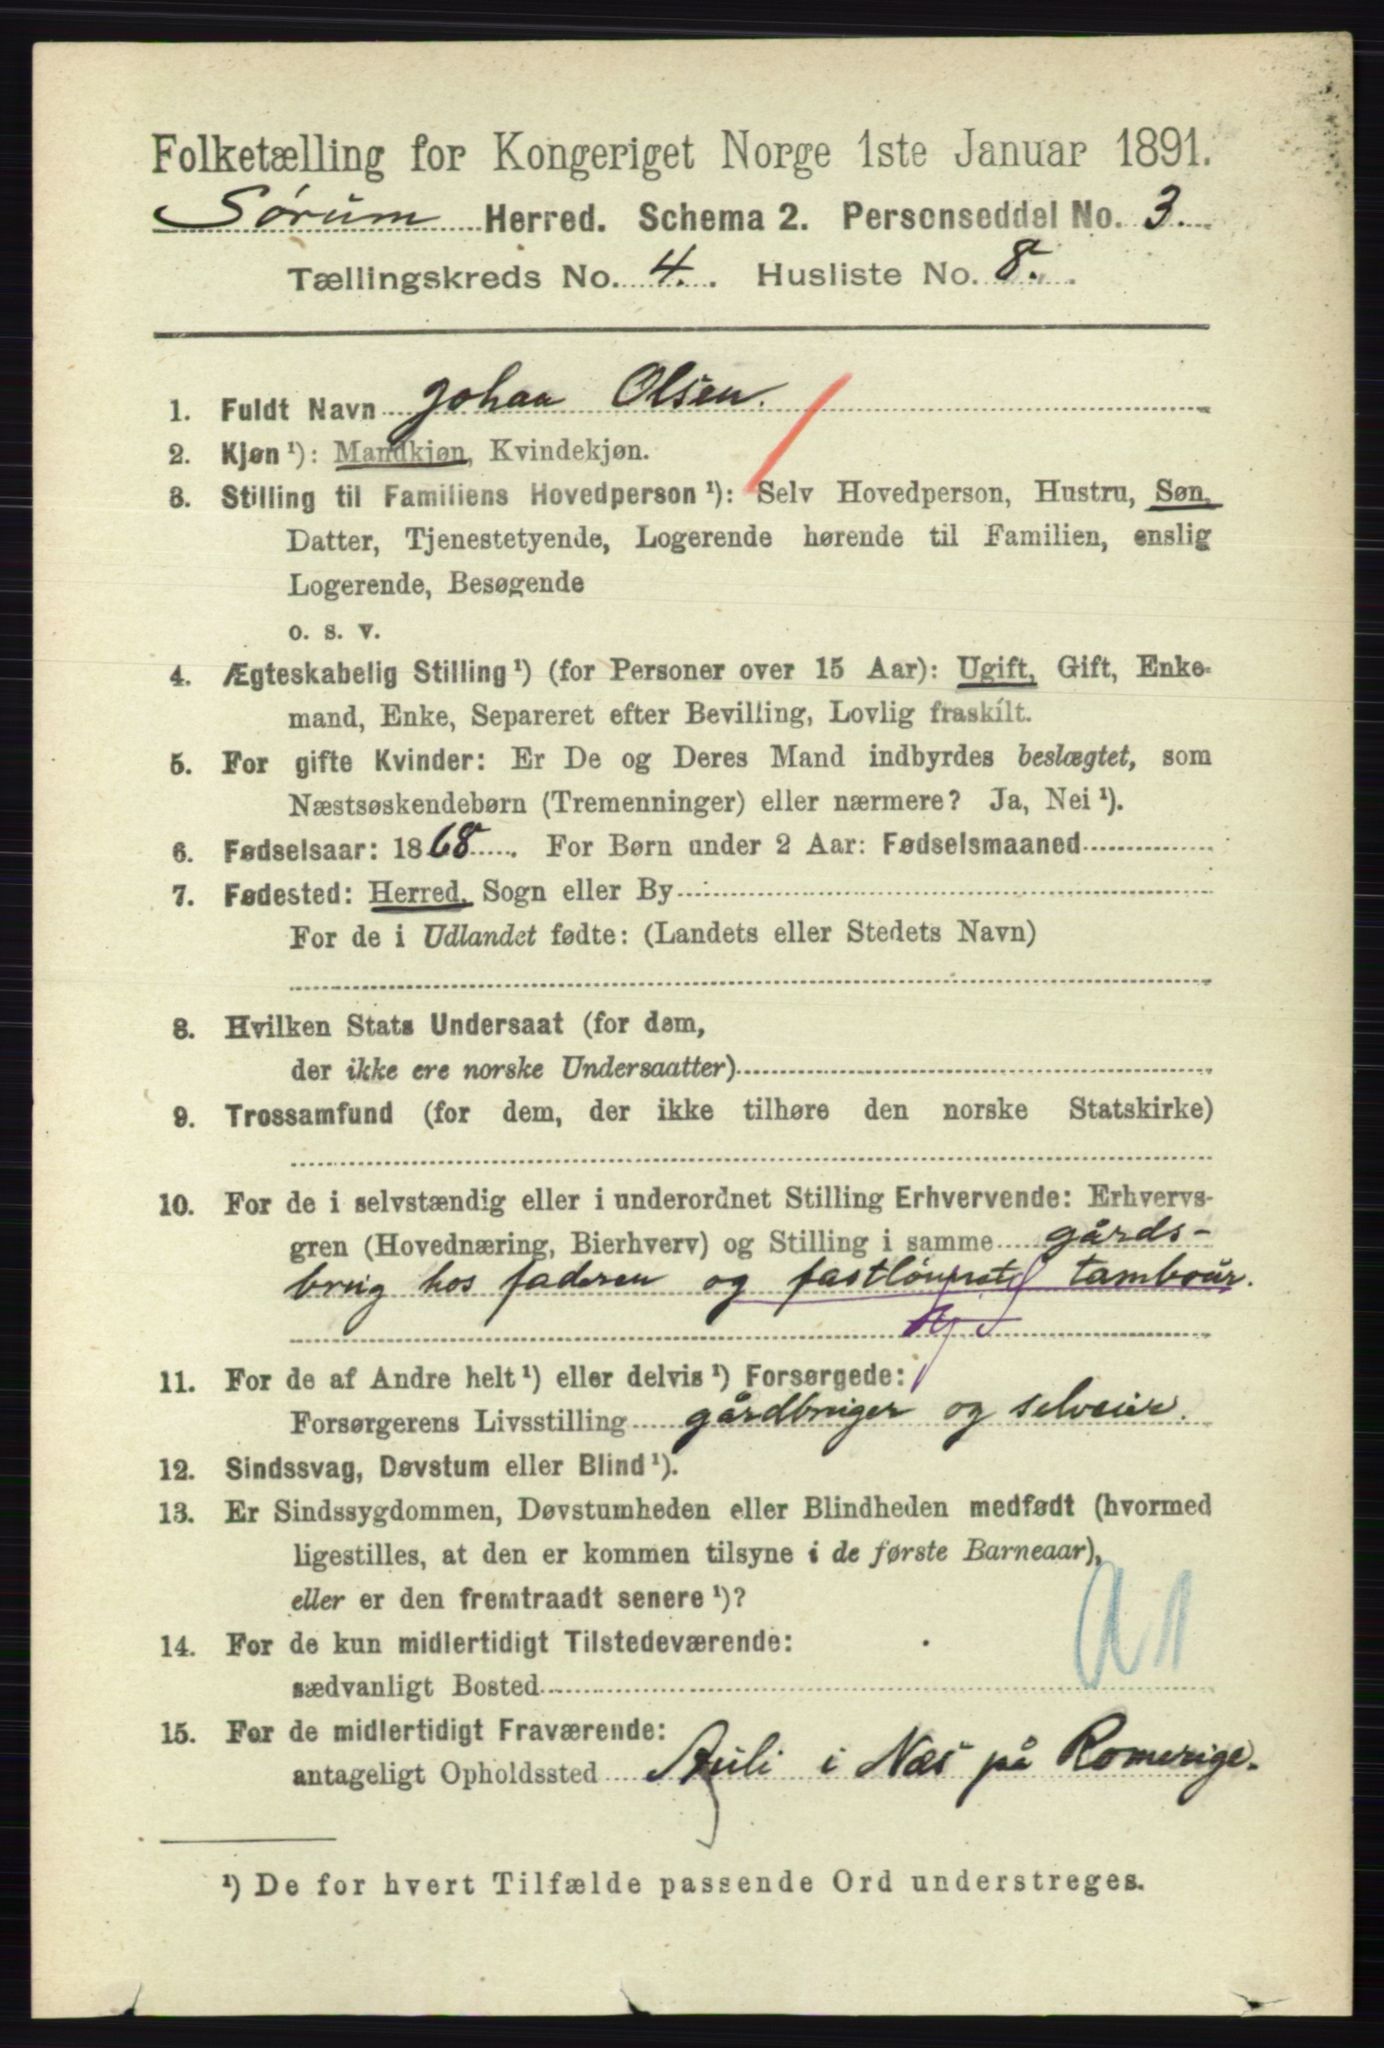 Folketælling for Kongeriget Norge 1ste Januar 1891.
Sørum Herred. Schema 2. Personseddel No. 3.
Tællingskreds No. 4. Husliste No. 8.
1. Fuldt Navn Johan Olsen.
2. Kjøn¹): Mandkjøn, Kvindekjøn.
3. Stilling til Familiens Hovedperson¹): Selv Hovedperson, Hustru, Søn,
Datter, Tjenestetyende, Logerende hørende til Familien, enslig
Logerende, Besøgende
o. s. v.
4. Ægteskabelig Stilling¹) (for Personer over 15 Aar): Ugift, Gift, Enke-
mand, Enke, Separeret efter Bevilling, Lovlig fraskilt.
5. For gifte Kvinder: Er De og Deres Mand indbyrdes beslægtet, som
Næstsøskendebørn (Tremenninger) eller nærmere? Ja, Nei¹).
6. Fødselsaar: 1868. For Børn under 2 Aar: Fødselsmaaned
7. Fødested: Herred, Sogn eller By
For de i Udlandet fødte: (Landets eller Stedets Navn)
8. Hvilken Stats Undersaat (for dem,
der ikke ere norske Undersaatter)
9. Trossamfund (for dem, der ikke tilhøre den norske Statskirke)
10. For de i selvstændig eller i underordnet Stilling Erhvervende: Erhvervs-
gren (Hovednæring, Bierhverv) og Stilling i samme gårds-
brug hos faderen og fastlønnet tambour.
11. For de af Andre helt¹) eller delvis¹) Forsørgede:
Forsørgerens Livsstilling gårdbruger og selveier.
12. Sindssvag, Døvstum eller Blind¹).
13. Er Sindssygdommen, Døvstumheden eller Blindheden medfødt (hvormed
ligestilles, at den er kommen tilsyne i de første Barneaar),
eller er den fremtraadt senere¹)?
14. For de kun midlertidigt Tilstedeværende:
sædvanligt Bosted
15. For de midlertidigt Fraværende:
antageligt Opholdssted Auli i Næs på Romerige.
¹) De for hvert Tilfælde passende Ord understreges.